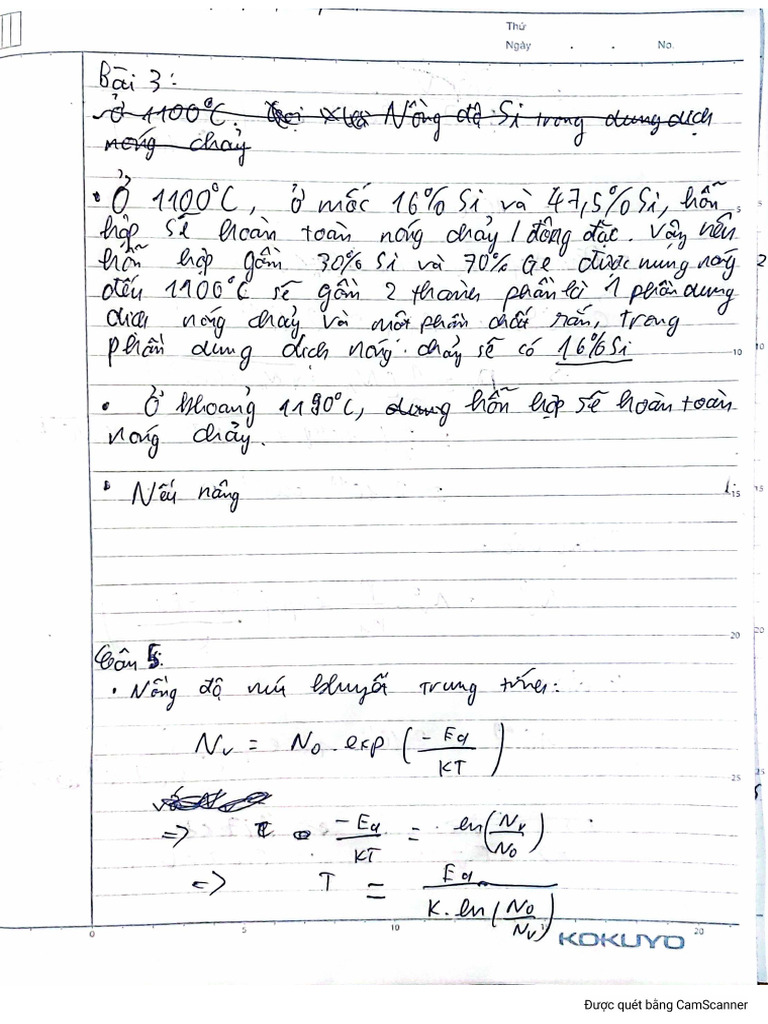 Thứ
Ngày . . No.
Bài 3:
Ở 1100°C. Nồng độ Si trong dung dịch
nóng chảy
• Ở 1100°C, ở mốc 16% Si và 47,5% Si, hỗn
hợp sẽ hoàn toàn nóng chảy / đông đặc. Vậy nên
hỗn hợp gồm 30% Si và 70% Ge được nung nóng
đến 1100°C sẽ gồm 2 thành phần là 1 phần dung
dịch nóng chảy và một phần chất rắn, trong
phần dung dịch nóng chảy sẽ có 16% Si
• Ở khoảng 1190°C, dung hỗn hợp sẽ hoàn toàn
nóng chảy.
• Nếu nâng
Câu 5:
• Nồng độ nút khuyết trung tính:
Nv = No . exp (-Ea / KT)
=> -Ea / KT = ln(Nv / No)
=> T = Ea / K. ln(No / Nv)
5
10
15
20
25
0 5 10 15 20
KOKUYO
Được quét bằng CamScanner